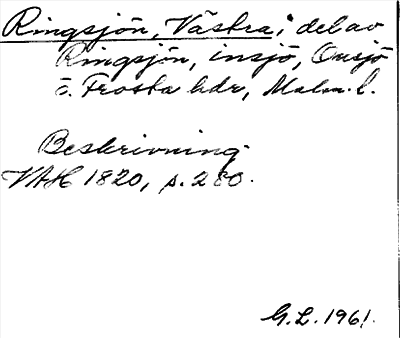 Ringsjön, Västra; del av
Ringsjön, insjö, Onsjö
o. Frosta hdr, Malm. l.
Beskrivning
VAH 1820, s. 280.
G.L. 1961.